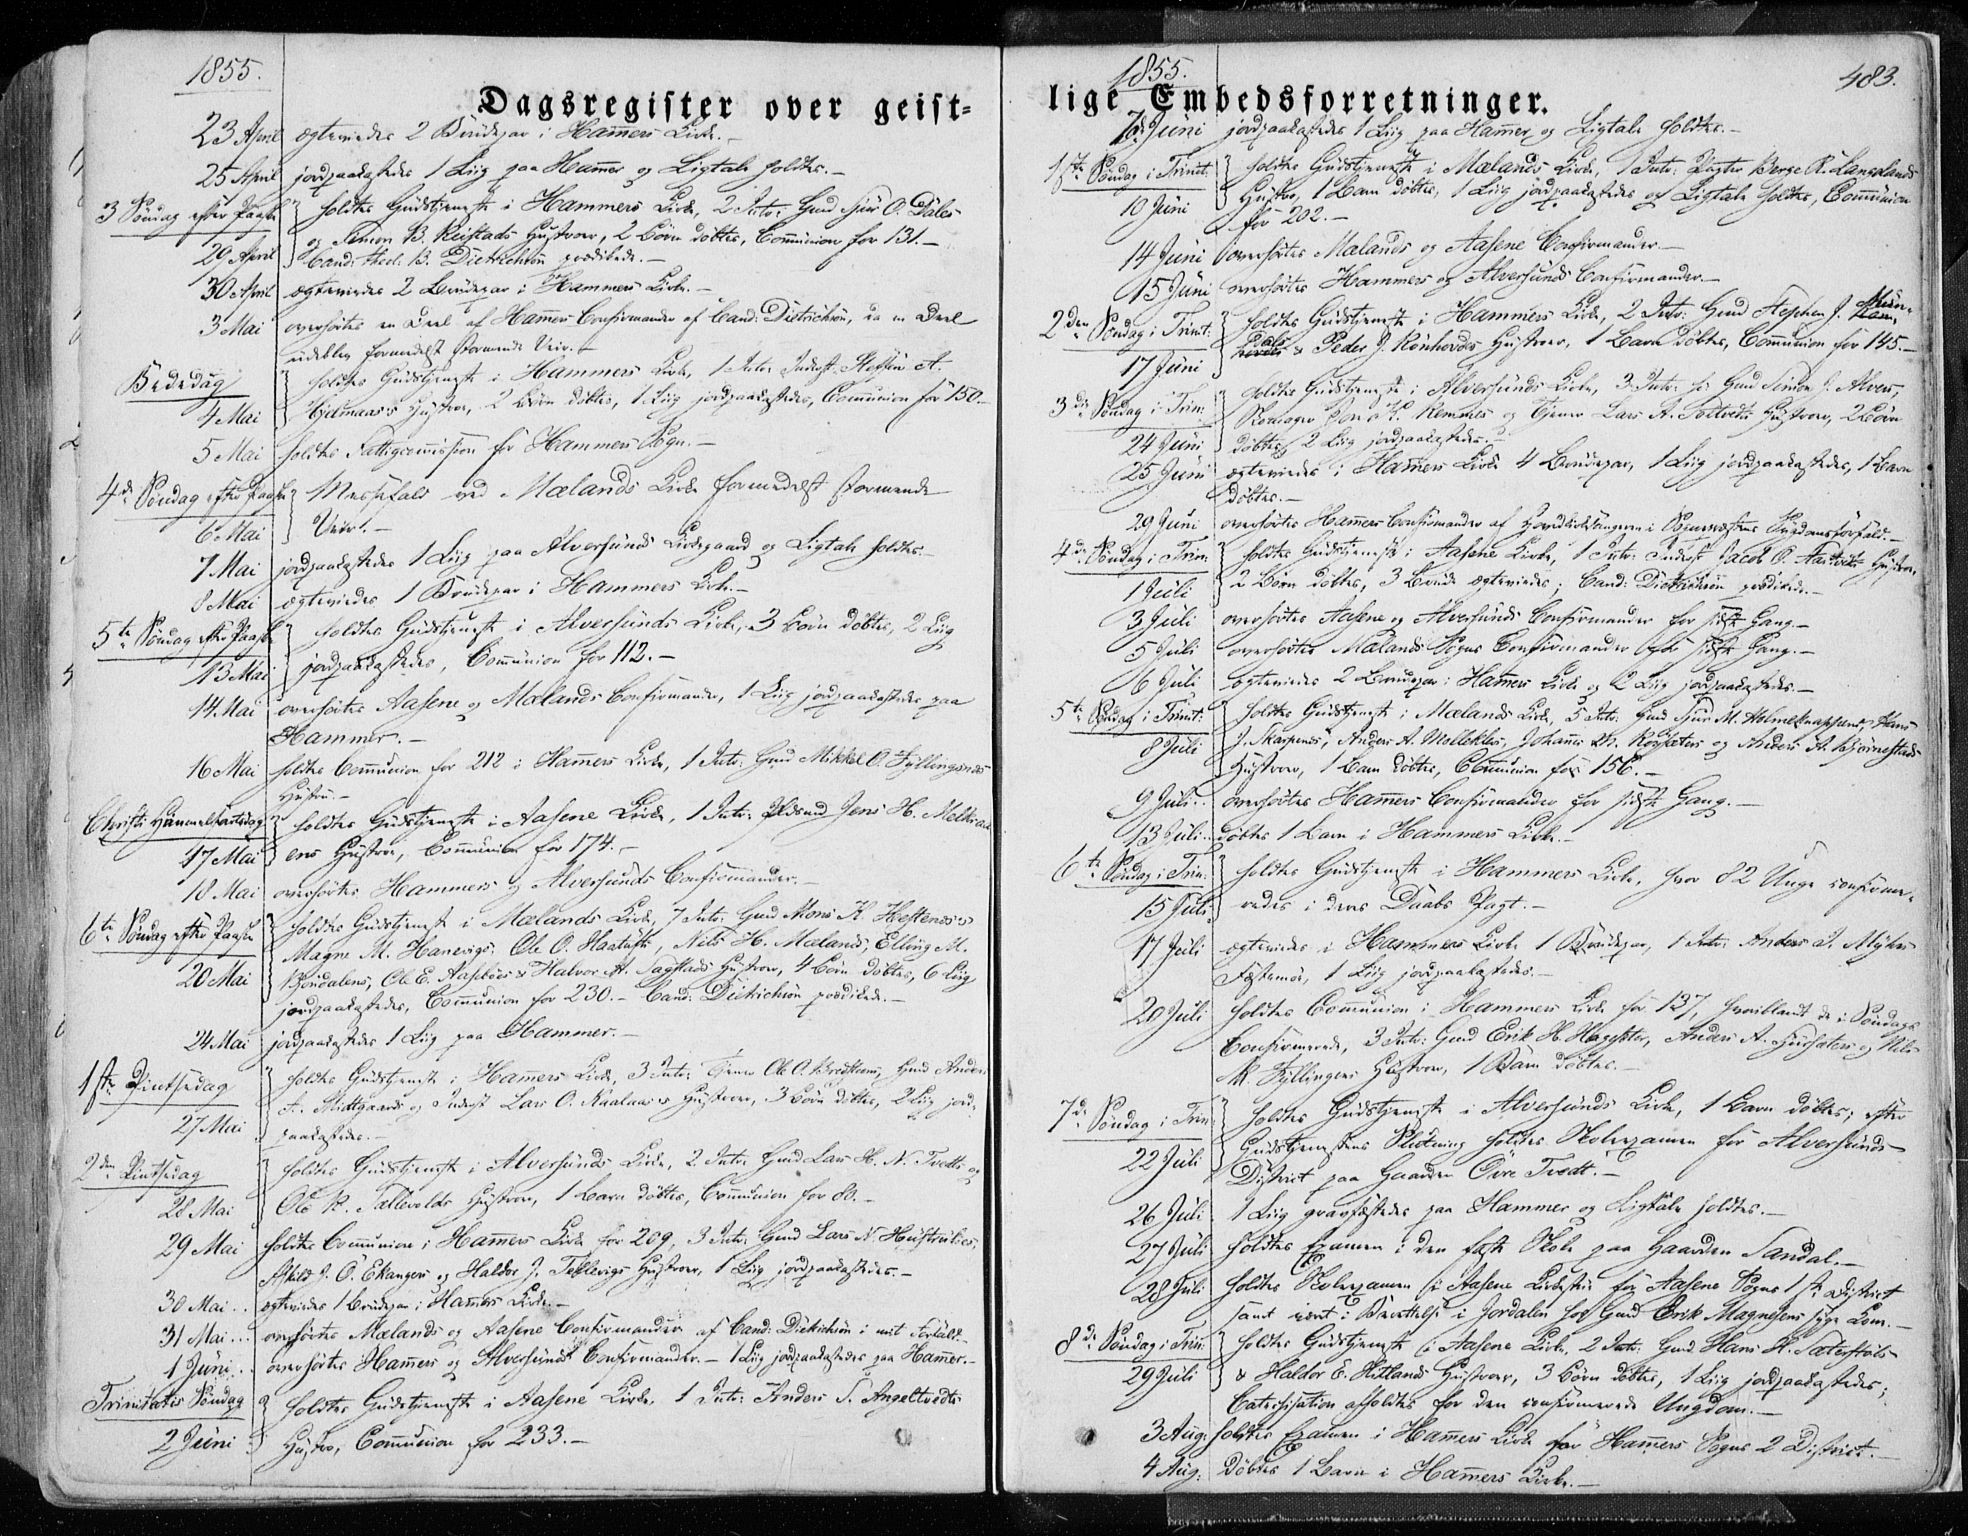 1855.
Dagsregister over geist=
23 April ægteviedes 2 Brudepar i Hammers Kirke.-
25 April jordpaakastedes 1 Liig paa Hammer og Ligtale holdtes.-
3 Søndag efter Paaske holdtes Gudstjeneste i Hammers Kirke, 2 Intr: Gmd O. Dales
og Simon B. Reistads Hustruer, 2 Børn døbtes, Communion for 131.-
29 April Cand: theol. B. Dietrichson prædikede.-
30 April ægteviedes 2 Brudepar i Hammers Kirke.-
3 Mai overhørtes en Deel af Hammers Confirmander af Cand: Dietrichson, da en Deel
udeblev formedelst stormende Veir.-
Bededag holdtes Gudstjeneste i Hammers Kirke, 1 Intr: Inderst Steffen A.
4 Mai Hustru, 2 Børn døbtes, 1 Liig jordpaakastedes, Communion for 150.-
5 Mai holdtes Fattigcommission for Hammers Sogn.-
4de Søndag efter Paaske Messefald ved Mælands Kirke formedelst stormende
6 Mai Veir.-
7 Mai jordpaakastedes 1 Liig paa Alversunds Kirkegaard og Ligtale holdtes.-
8 Mai ægteviedes 1 Brudepar i Hammers Kirke.-
5te Søndag efter Paaske holdtes Gudstjeneste i Alversunds Kirke, 3 Børn døbtes, 2 Liig
13 Mai jordpaakastedes, Communion for 112.-
14 Mai overhørtes Aasene og Mælands Confirmander, 1 Liig jordpaakastedes paa
Hammer.-
16 Mai holdtes Communion for 212 i Hammers Kirke, 1 Intr: Gmd Mikkel O. Fyllingsnes
Hustru.-
Christi Himmelfartsdag holdtes Gudstjeneste i Aasene Kirke, 1 Intr: Jens H.
17 Mai Hustru, Communion for 174.-
18 Mai overhørtes Hammers og Alversunds Confirmander.-
6te Søndag efter Paaske holdtes Gudstjeneste i Mælands Kirke, 7 Intr: Gmd Mons K.
Magne M. Hanevigs, Ole O., Nils H. Mælands, Elling M.
20 Mai Ole E. & Halvor Hustruer, 4 Børn døbtes, 6 Liig
jordpaakastedes, Communion for 230.- Cand: Dietrichson prædikede.-
24 Mai jordpaakastedes 1 Liig paa Hammer.-
1ste Pintsedag holdtes Gudstjeneste i Hammers Kirke, 3 Intr: Ole O., Gmd Anders
Midtgaards og Inderst Lars O. Hustruer, 3 Børn døbtes, 2 Liig jord-
27 Mai paakastedes.-
2den Pintsedag holdtes Gudstjeneste i Alversunds Kirke, 2 Intr: Gmd Lars H. N. Tvedts og
28 Mai Ole Hustruer, 1 Barn døbtes, Communion for 80.-
29 Mai holdtes Communion i Hammers Kirke for 209, 3 Intr: Gmd Lars N.
Ekangers og Haldor J. Hustruer, 1 Liig jordpaakastedes.-
30 Mai .. ægteviedes 1 Brudepar i Hammers Kirke.-
31 Mai ... overhørtes Mælands og Aasene Confirmander af Cand: Dietrichson i mit Forfald.-
1 Juni .. overhørtes Hammers og Alversunds Confirmander.- 1 Liig jordpaakastedes paa Hammer.-
Trinitatis Søndag holdtes Gudstjeneste i Aasene Kirke, 1 Intr: Anders S. Angeltvedts
2 Juni Hustru, Communion for 233.-
1855.
483.
lige Embedsforretninger.
Juni jordpaakastedes 1 Liig paa Hammer og Ligtale holdtes.-
1ste Søndag i Trinit: holdtes Gudstjeneste i Mælands Kirke, 1 Intr: Berge R. Langelands
10 Juni Hustru, 1 Barn døbtes, 1 Liig jordpaakastedes og Ligtale holdtes, Communion
for 202.-
14 Juni overhørtes Mælands og Aasene Confirmander.-
15 Juni overhørtes Hammers og Alversunds Confirmander.-
2den Søndag i Trinit: holdtes Gudstjeneste i Hammers Kirke, 2 Intr: Gmd Steffen J.
17 Juni & Peder J. Rønhovdes Hustruer, 1 Barn døbtes, Communion for 145.-
3die Søndag i Trin: holdtes Gudstjeneste i Alversunds Kirke, 3 Intr: Gmd Simon J. Alvers,
Hemmes og Lars A. Hustruer, 2 Børn
24 Juni døbtes, 2 Liig jordpaakastedes.-
25 Juni ægteviedes i Hammers Kirke 4 Brudepar, 1 Liig jordpaakastedes, 1 Barn
døbtes.-
29 Juni overhørtes Hammers Confirmander af Hovedkirkesangeren i Sognepræstens Sygdomsforfald.-
4de Søndag i Trin: holdtes Gudstjeneste i Aasene Kirke, 1 Intr: Inderst Jacob O. Hustru,
1 Juli 2 Børn døbtes, 3 Brude ægteviedes; Cand: Dietrichson prædikede.-
3 Juli overhørtes Aasene og Alversunds Confirmander for sidste Gang.-
5 Juli overhørtes Mælands Sogns Confirmander for sidste Gang.-
6 Juli ægteviedes 2 Brudepar i Hammers Kirke og 2 Liig jordpaakastedes.-
5te Søndag i Trinit: holdtes Gudstjeneste i Mælands Kirke, 5 Intr: Gmd M. Holmeknappens, Hans
8 Juli J., Anders A., Johannes og Anders A.
Hustruer, 1 Barn døbtes, Communion for 156.-
9 Juli .. overhørtes Hammers Confirmander for sidste Gang.-
13 Juli .. døbtes 1 Barn i Hammers Kirke.-
6te Søndag i Trin: holdtes Gudstjeneste i Hammers Kirke, hvor 82 Unge confirme-
15 Juli redes i deres Daabs Pagt.-
17 Juli ægteviedes i Hammers Kirke 1 Brudepar, 1 Intr: Anders
Fæstemø, 1 Liig jordpaakastedes.-
20 Juli holdtes Communion i Hammers Kirke for 137, hvoriblandt de i Søndags
Confirmerede, 3 Intr: Gmd Erik H., Anders A. og Nils
M. Fyllingens Hustruer, 1 Barn døbtes.-
7de Søndag i Trin: holdtes Gudstjeneste i Alversunds Kirke, 1 Barn døbtes; efter
Gudstjenestens Slutning holdtes Skoleexamen for Alversunds
22 Juli District paa Gaarden Øvre Tvedt.-
26 Juli 1 Liig gravfæstedes paa Hammer og Ligtale holdtes.-
27 Juli holdtes Examen i den faste Skole paa Gaarden Sandal.-
28 Juli holdtes Skoleexamen i Aasene Kirkestue for Aasene Sogns 1ste District
samt været i Berettelse i Jordalen hos Gmd Erik Magnesens syge Kone.-
8de Søndag i Trin: holdtes Gudstjeneste i Aasene Kirke, 2 Intr: Gmd Hans K.
29 Juli & Haldor E. Hitlands Hustruer, 3 Børn døbtes, 1 Liig jordpaakastedes;
Catechisation afholdtes for den confirmerede Ungdom.-
3 Aug: holdtes Examen i Hammers Kirke for Hammers Sogns 2 District.-
4 Aug: døbtes 1 Barn i Hammers Kirke.-